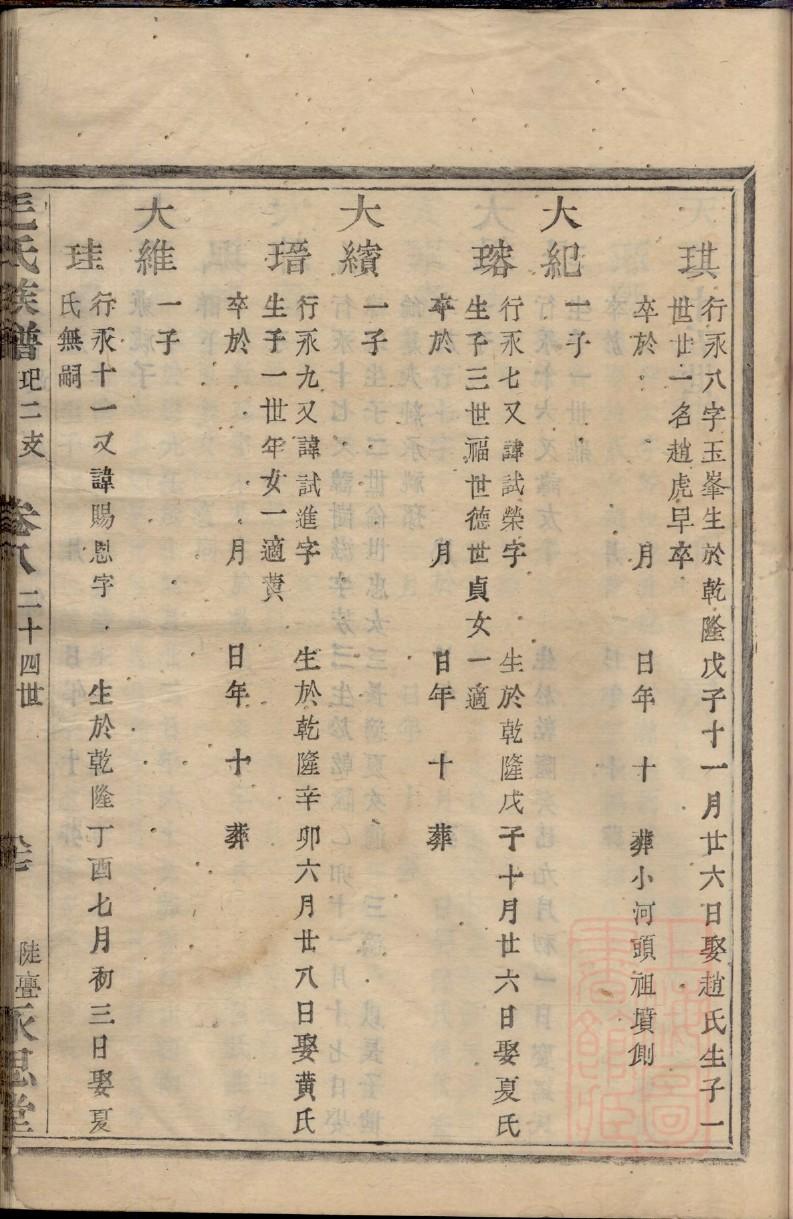 琪
行永八字玉峯生於乾隆戊子十一月廿六日娶趙氏生子一
世廿一名趙虎早卒
卒於 月 日年 十 葬小河頭祖墳側
大紀一子
瑢
行永七又諱試榮字 生於乾隆戊子十月廿六日娶夏氏
生子三世福世德世貞女一適
卒於 月 日年 十 葬
大繽一子
瑨
行永九又諱試進字 生於乾隆辛卯六月廿八日娶黃氏
生子一世年女一適龔
卒於 月 日年 十 葬
大維一子
珪
行永十一又諱賜恩字 生於乾隆丁酉七月初三日娶夏
氏無嗣
毛氏族譜 玘二支 卷八 二十四世 陡亹永思堂